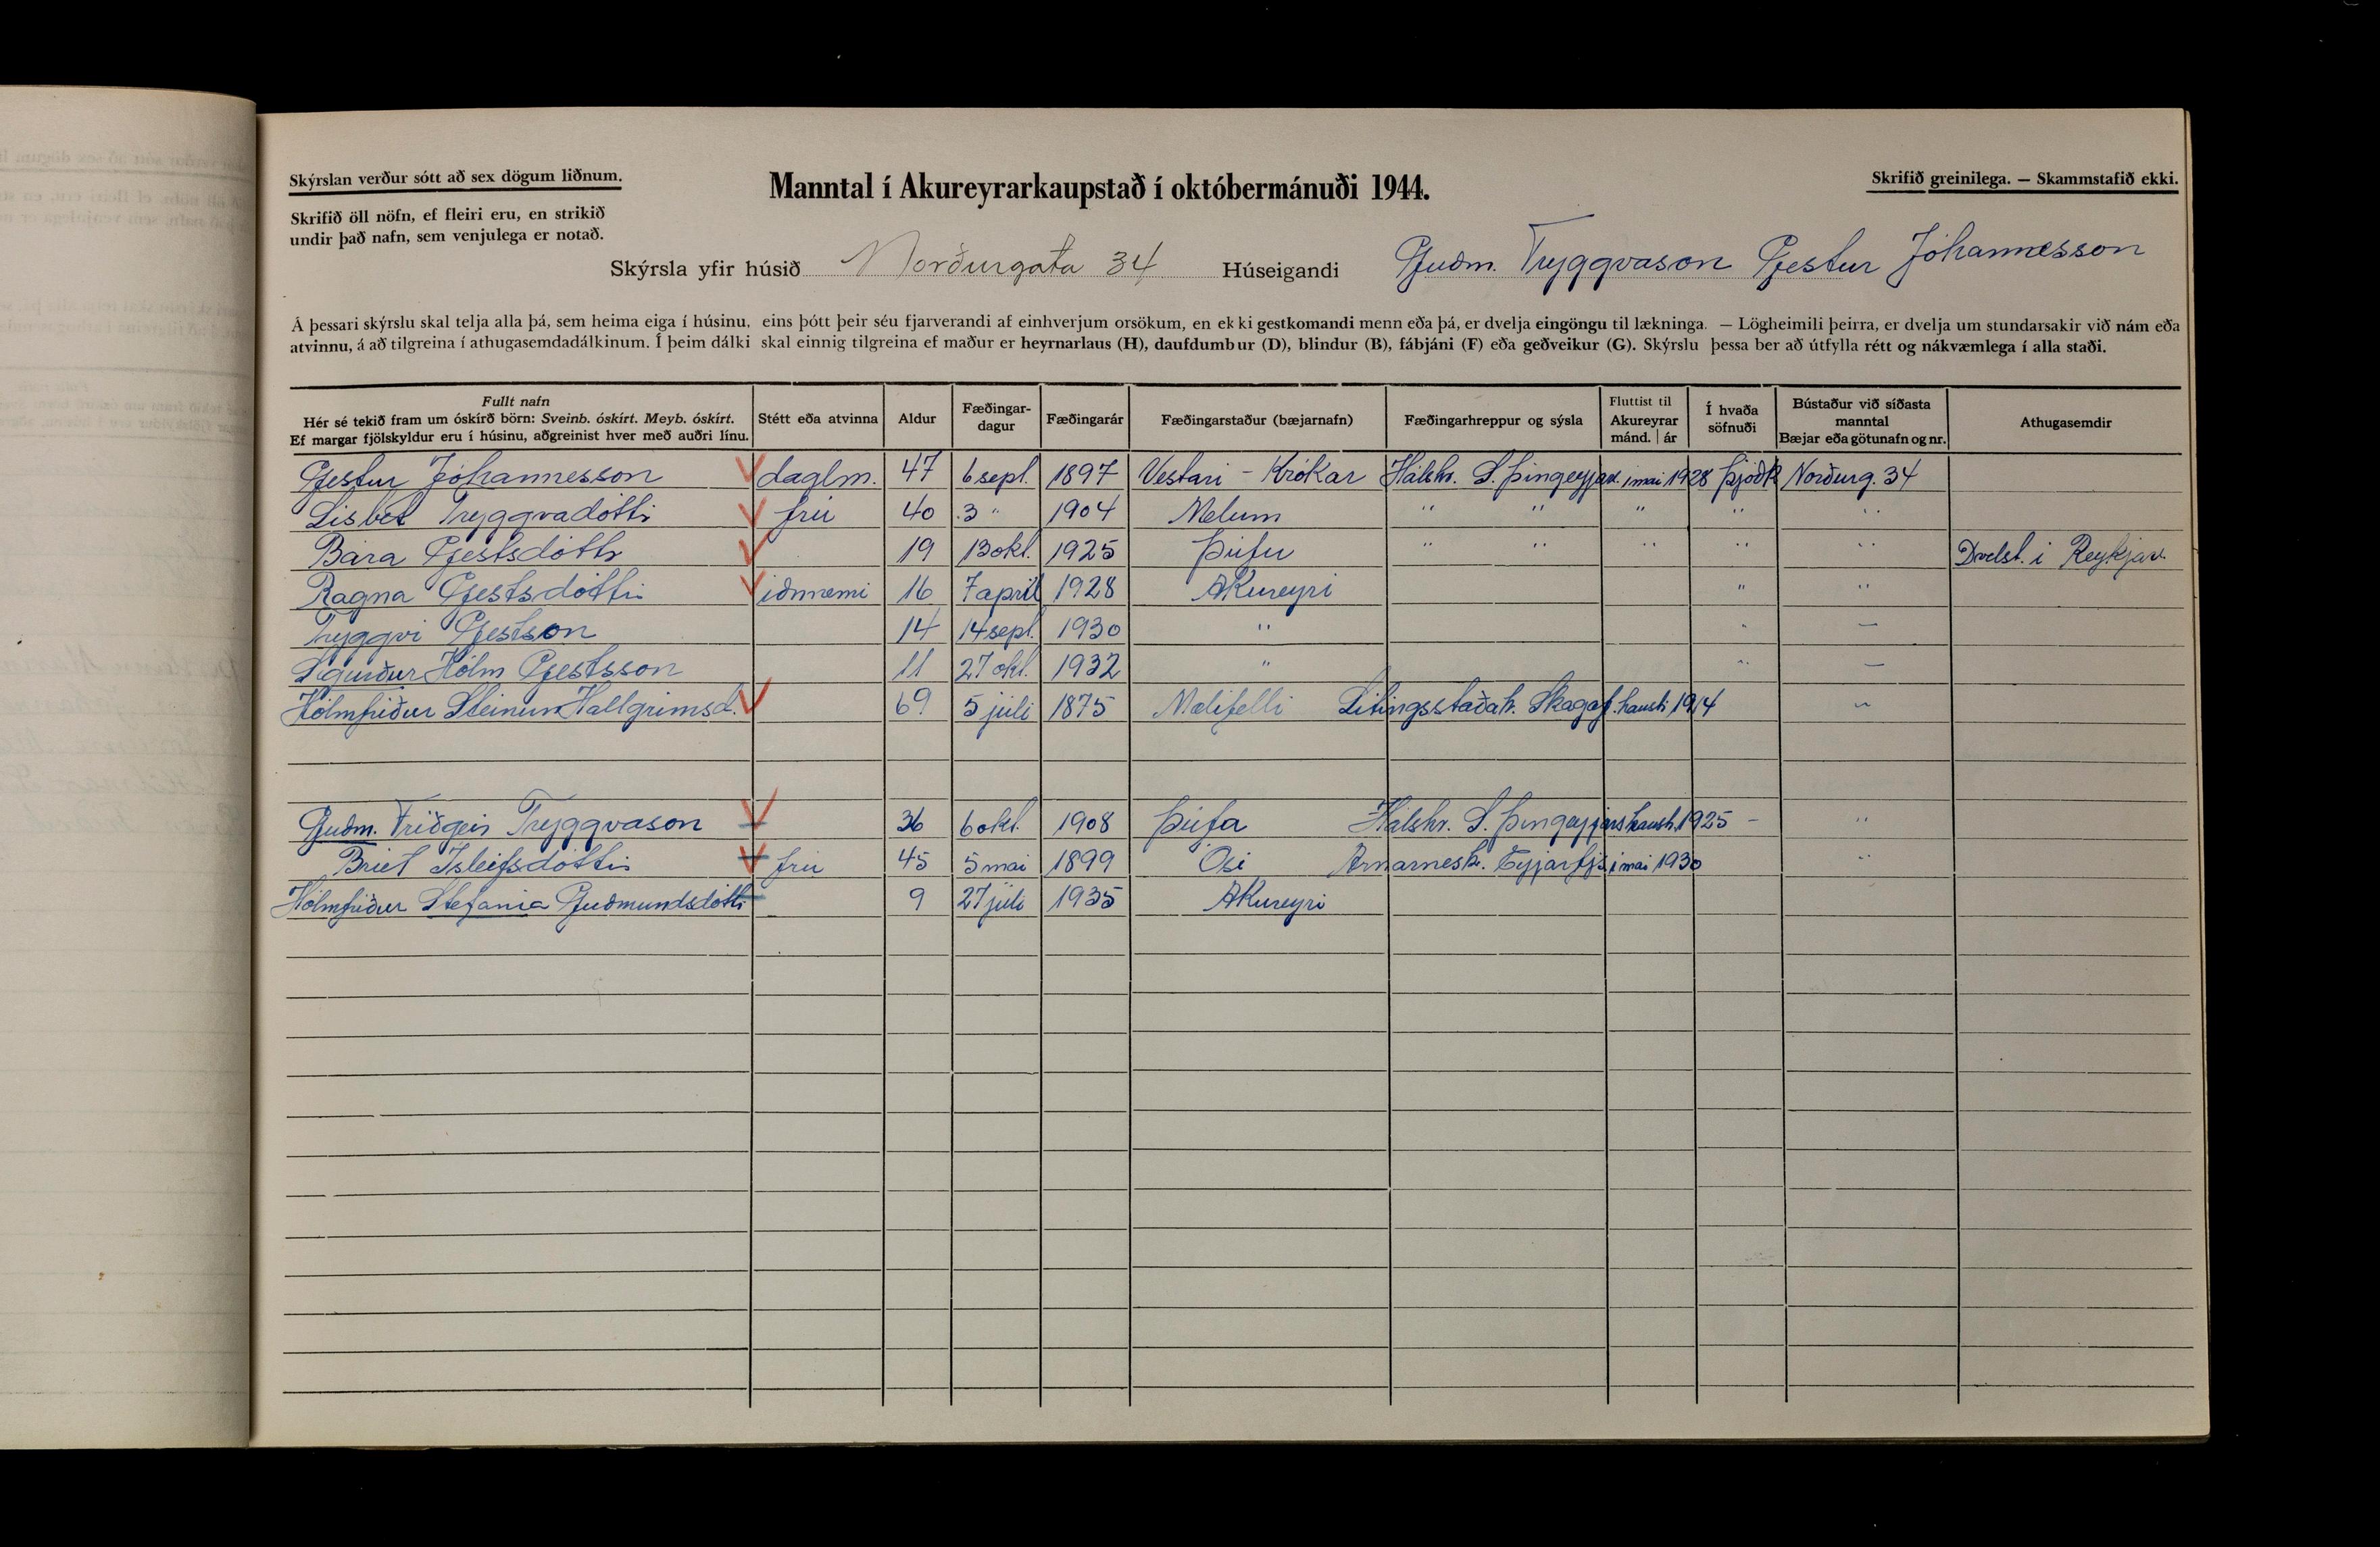 Skýrslan verður sótt að sex dögum liðnum.
Manntal í Akureyrarkaupstað í októbermánuði 1944.
Skrifið greinilega. — Skammstafið ekki.
Skrifið öll nöfn, ef fleiri eru, en strikið
undir það nafn, sem venjulega er notað.
Skýrsla yfir húsið Norðurgata 34 Húseigandi Guðm. Tryggvason Gestur Jóhannesson
Á þessari skýrslu skal telja alla þá, sem heima eiga í húsinu, eins þótt þeir séu fjarverandi af einhverjum orsökum, en ekki gestkomandi menn eða þá, er dvelja eingöngu til lækninga. — Lögheimili þeirra, er dvelja um stundarsakir við nám eða
atvinnu, á að tilgreina í athugasemdadálkinum. Í þeim dálki skal einnig tilgreina ef maður er heyrnarlaus (H), daufdumbur (D), blindur (B), fábjáni (F) eða geðveikur (G). Skýrslu þessa ber að útfylla rétt og nákvæmlega í alla staði.
Fullt nafn
Hér sé tekið fram um óskírð börn: Sveinb. óskírt. Meyb. óskírt.
Ef margar fjölskyldur eru í húsinu, aðgreinist hver með auðri línu.
Stétt eða atvinna
Aldur
Fæðingar-
dagur
Fæðingarár
Fæðingarstaður (bæjarnafn)
Fæðingarhreppur og sýsla
Fluttist til
Akureyrar
mánd. | ár
Í hvaða
söfnuði
Bústaður við síðasta
manntal
Bæjar eða götunafn og nr.
Athugasemdir
Gestur Jóhannesson daglm. 47 6 sept. 1897 Vestari - Krókar Hálshr. S. Þingeyjar. í mai 1928 Þjóðk Norðurg. 34
Lisbet Tryggvadóttir frú 40 3 " 1904 Melum " " " " "
Bára Gestsdóttir 19 13 okt. 1925 Þúfu " " " " " Dvelst. í Reykjav.
Ragna Gestsdóttir iðnnemi 16 7 apríl 1928 Akureyri " "
Tryggvi Gestson 14 14 sept. 1930 " " —
Sigurður Hólm Gestsson 11 27 okt. 1932 " " —
Hólmfríður Steinunn Hallgrimsd. 69 5 júli 1875 Mælifelli Litingsstaðah. Skagaf. hausti 1914 "
Guðm. Friðgeir Tryggvason 36 6 okt. 1908 Þúfa Hálshr. S. Þingeyjars haust. 1925 — "
Briet Isleifsdóttir frú 45 5 mai 1899 Ósi Arnarnesh. Eyjarfjs. í mai 1930 "
Hólmfriður Stefania Guðmundsdótti 9 27 júli 1935 Akureyri